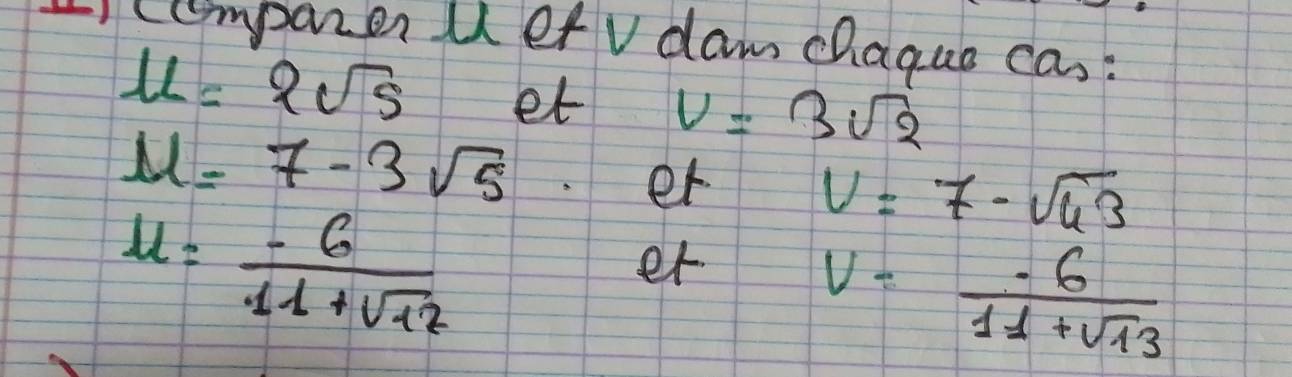 II) Comparer U et V dans chaque cas:
U = 2√5 et V = 3√2
U = 7 - 3√5 . et V = 7 - √43
U = -6/(11 + √12) et V = -6/(11 + √13)